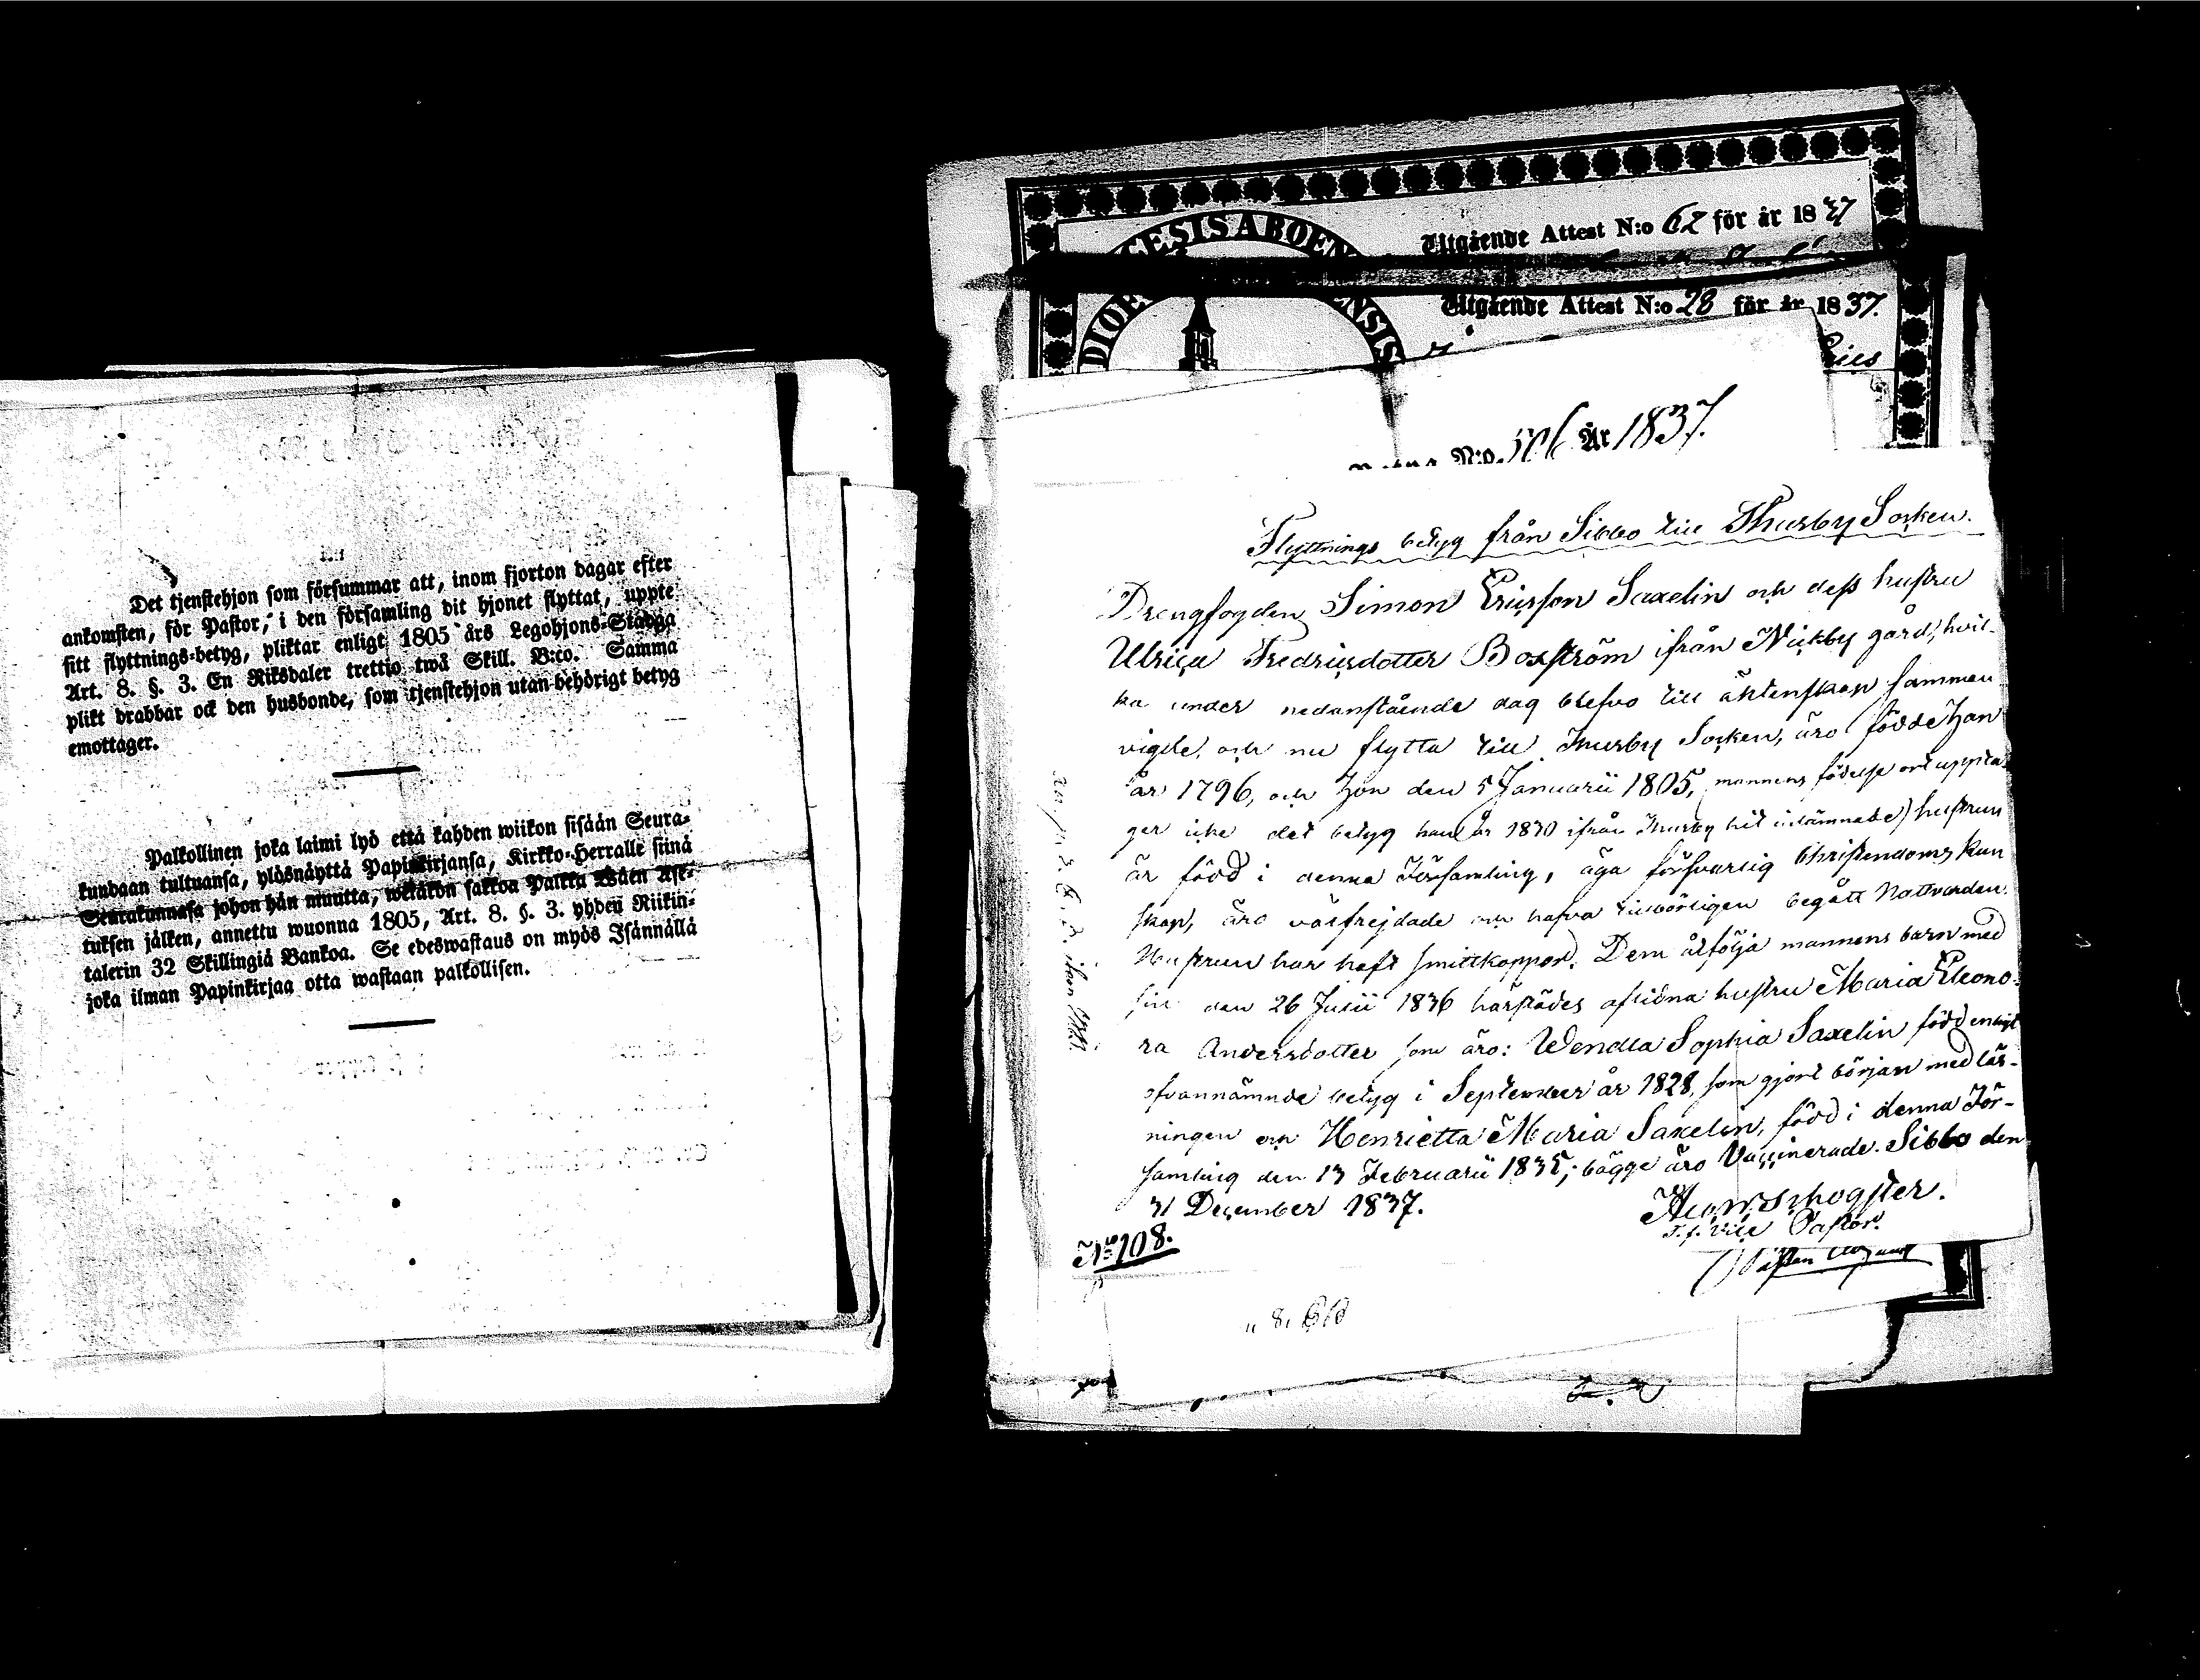 Det tjenstehjon som försummar att, inom fjorton dagar efter
ankomsten, för Pastor, i den församling dit hjonet flyttat, uppte
sitt flyttnings-betyg, pliktar enligt 1805 års Legohjons-Stadga
Art. 8. §. 3. En Riksdaler trettio twå Skill. B:co. Samma
plikt drabbar ock den husbonde, som tjenstehjon utan behörigt betyg
emottager.
Palkollinen joka laimi lyö että kahden wiikon sisään Seura-
kundaan tultuansa, ylösnäyttä Papinkirjansa, Kirkko-Herralle siinä
Seurakunnasa johon hän muutta, wetäkön sakkoa Palkka Wäen Ase-
tuksen jälken, annettu wuonna 1805, Art. 8. §. 3. yhden Riikin-
talerin 32 Skillingiä Bankoa. Se edeswastaus on myös Isännällä
joka ilman Papinkirjaa otta wastaan palkollisen.
DIOECESIS ABOENSIS
Utgående Attest N:o 62 för år 1837
DIOE ENSIS
Utgående Attest N:o 28 för år 1837.
N:o. År 1837.
Flyttnings betyg från Sibbo till Thusby Socken.
Drengfogden Simon Ericsson Saxelin och dess hustru
Ulrica Fredricsdotter Boxström ifrån Nickby gård, hvil-
ka under nedanstående dag blefvo till äktenskap samman
vigde, och nu flytta till Thusby Socken, äro födde Han
år 1796, och Hon den 5 Januarii 1805, (mannens födelse ort uppta-
ger icke det betyg han år 1830 ifrån Thusby hit inlämnade) hustrun
är född i denna Församling, äga försvarlig Christendoms kun
skap, äro välfrejdade och hafva tillbörligen begått Nattvarden.
Hustrun har haft smittkoppor. Dem åtfölja mannens barn med
sin den 26 Julii 1836 härstädes aflidna hustru Maria Eleono-
ra Andersdotter som äro: Wendla Sophia Saxelin född enligt
ofvannämnde betyg i September år 1828, som gjort början med läs-
ningen och Henrietta Maria Saxelin, född i denna För-
samling den 13 Februarii 1835; bägge äro Vaccinerade. Sibbo den
31 December 1837.
T. f. Vice Pastor.
No 108.